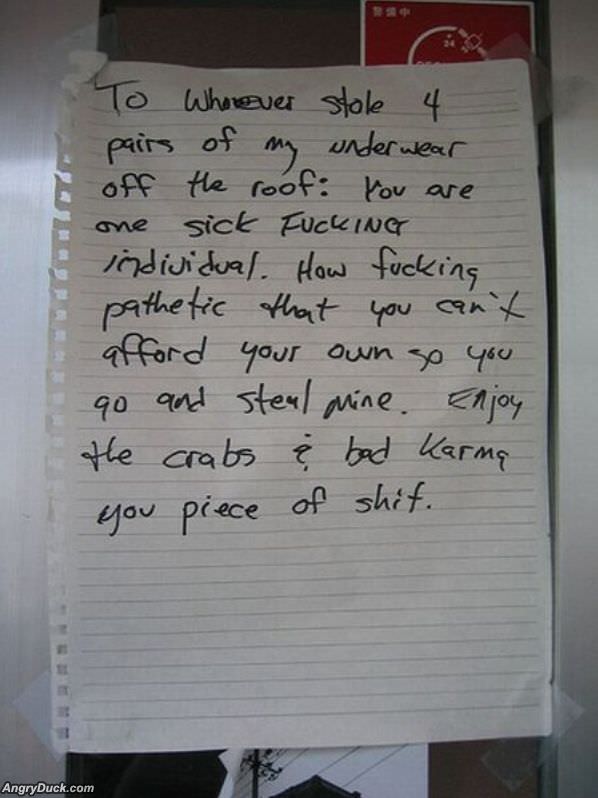 警備中
24
To Whoever stole 4
pairs of my underwear
off the roof: You are
one sick FUCKING
individual. How fucking
pathetic that you can't
afford your own so you
go and steal mine. Enjoy
the crabs & bad Karma
you piece of shit.
AngryDuck.com